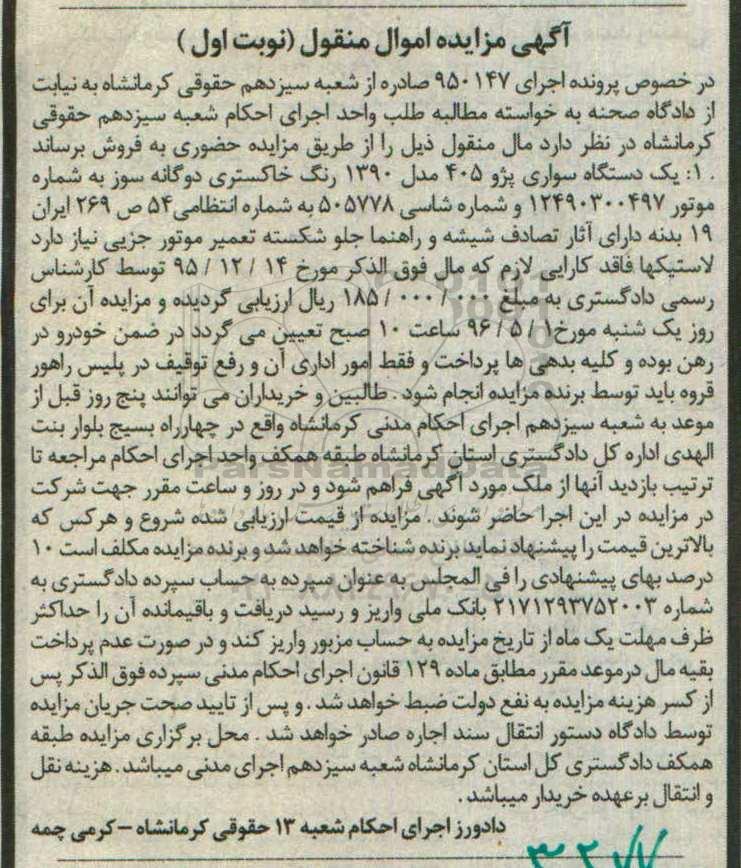 آگهی مزایده اموال منقول (نوبت اول)
در خصوص پرونده اجرای ۹۵۰۱۴۷ صادره از شعبه سیزدهم حقوقی کرمانشاه به نیابت
از دادگاه صحنه به خواسته مطالبه طلب واحد اجرای احکام شعبه سیزدهم حقوقی
کرمانشاه در نظر دارد مال منقول ذیل را از طریق مزایده حضوری به فروش برساند
. ۱: یک دستگاه سواری پژو ۴۰۵ مدل ۱۳۹۰ رنگ خاکستری دوگانه سوز به شماره
موتور ۱۲۴۹۰۳۰۰۴۹۷ و شماره شاسی ۵۰۵۷۷۸ به شماره انتظامی ۵۴ ص ۲۶۹ ایران
۱۹ بدنه دارای آثار تصادف شیشه و راهنما جلو شکسته تعمیر موتور جزیی نیاز دارد
لاستیکها فاقد کارایی لازم که مال فوق الذکر مورخ ۱۴ / ۱۲ / ۹۵ توسط کارشناس
رسمی دادگستری به مبلغ ۰۰۰ / ۰۰۰ / ۱۸۵ ریال ارزیابی گردیده و مزایده آن برای
روز یک شنبه مورخ ۱ / ۵ / ۹۶ ساعت ۱۰ صبح تعیین می گردد در ضمن خودرو در
رهن بوده و کلیه بدهی ها پرداخت و فقط امور اداری آن و رفع توقیف در پلیس راهور
قروه باید توسط برنده مزایده انجام شود . طالبین و خریداران می توانند پنج روز قبل از
موعد به شعبه سیزدهم اجرای احکام مدنی کرمانشاه واقع در چهارراه بسیج بلوار بنت
الهدی اداره کل دادگستری استان کرمانشاه طبقه همکف واحد اجرای احکام مراجعه تا
ترتیب بازدید آنها از ملک مورد آگهی فراهم شود و در روز و ساعت مقرر جهت شرکت
در مزایده در این اجرا حاضر شوند . مزایده از قیمت ارزیابی شده شروع و هرکس که
بالاترین قیمت را پیشنهاد نماید برنده شناخته خواهد شد و برنده مزایده مکلف است ۱۰
درصد بهای پیشنهادی را فی المجلس به عنوان سپرده به حساب سپرده دادگستری به
شماره ۲۱۷۱۲۹۳۷۵۲۰۰۳ بانک ملی واریز و رسید دریافت و باقیمانده آن را حداکثر
ظرف مهلت یک ماه از تاریخ مزایده به حساب مزبور واریز کند و در صورت عدم پرداخت
بقیه مال درموعد مقرر مطابق ماده ۱۲۹ قانون اجرای احکام مدنی سپرده فوق الذکر پس
از کسر هزینه مزایده به نفع دولت ضبط خواهد شد . و پس از تایید صحت جریان مزایده
توسط دادگاه دستور انتقال سند اجاره صادر خواهد شد . محل برگزاری مزایده طبقه
همکف دادگستری کل استان کرمانشاه شعبه سیزدهم اجرای مدنی میباشد . هزینه نقل
و انتقال برعهده خریدار میباشد .
دادورز اجرای احکام شعبه ۱۳ حقوقی کرمانشاه – کرمی چمه
ParsNamadData